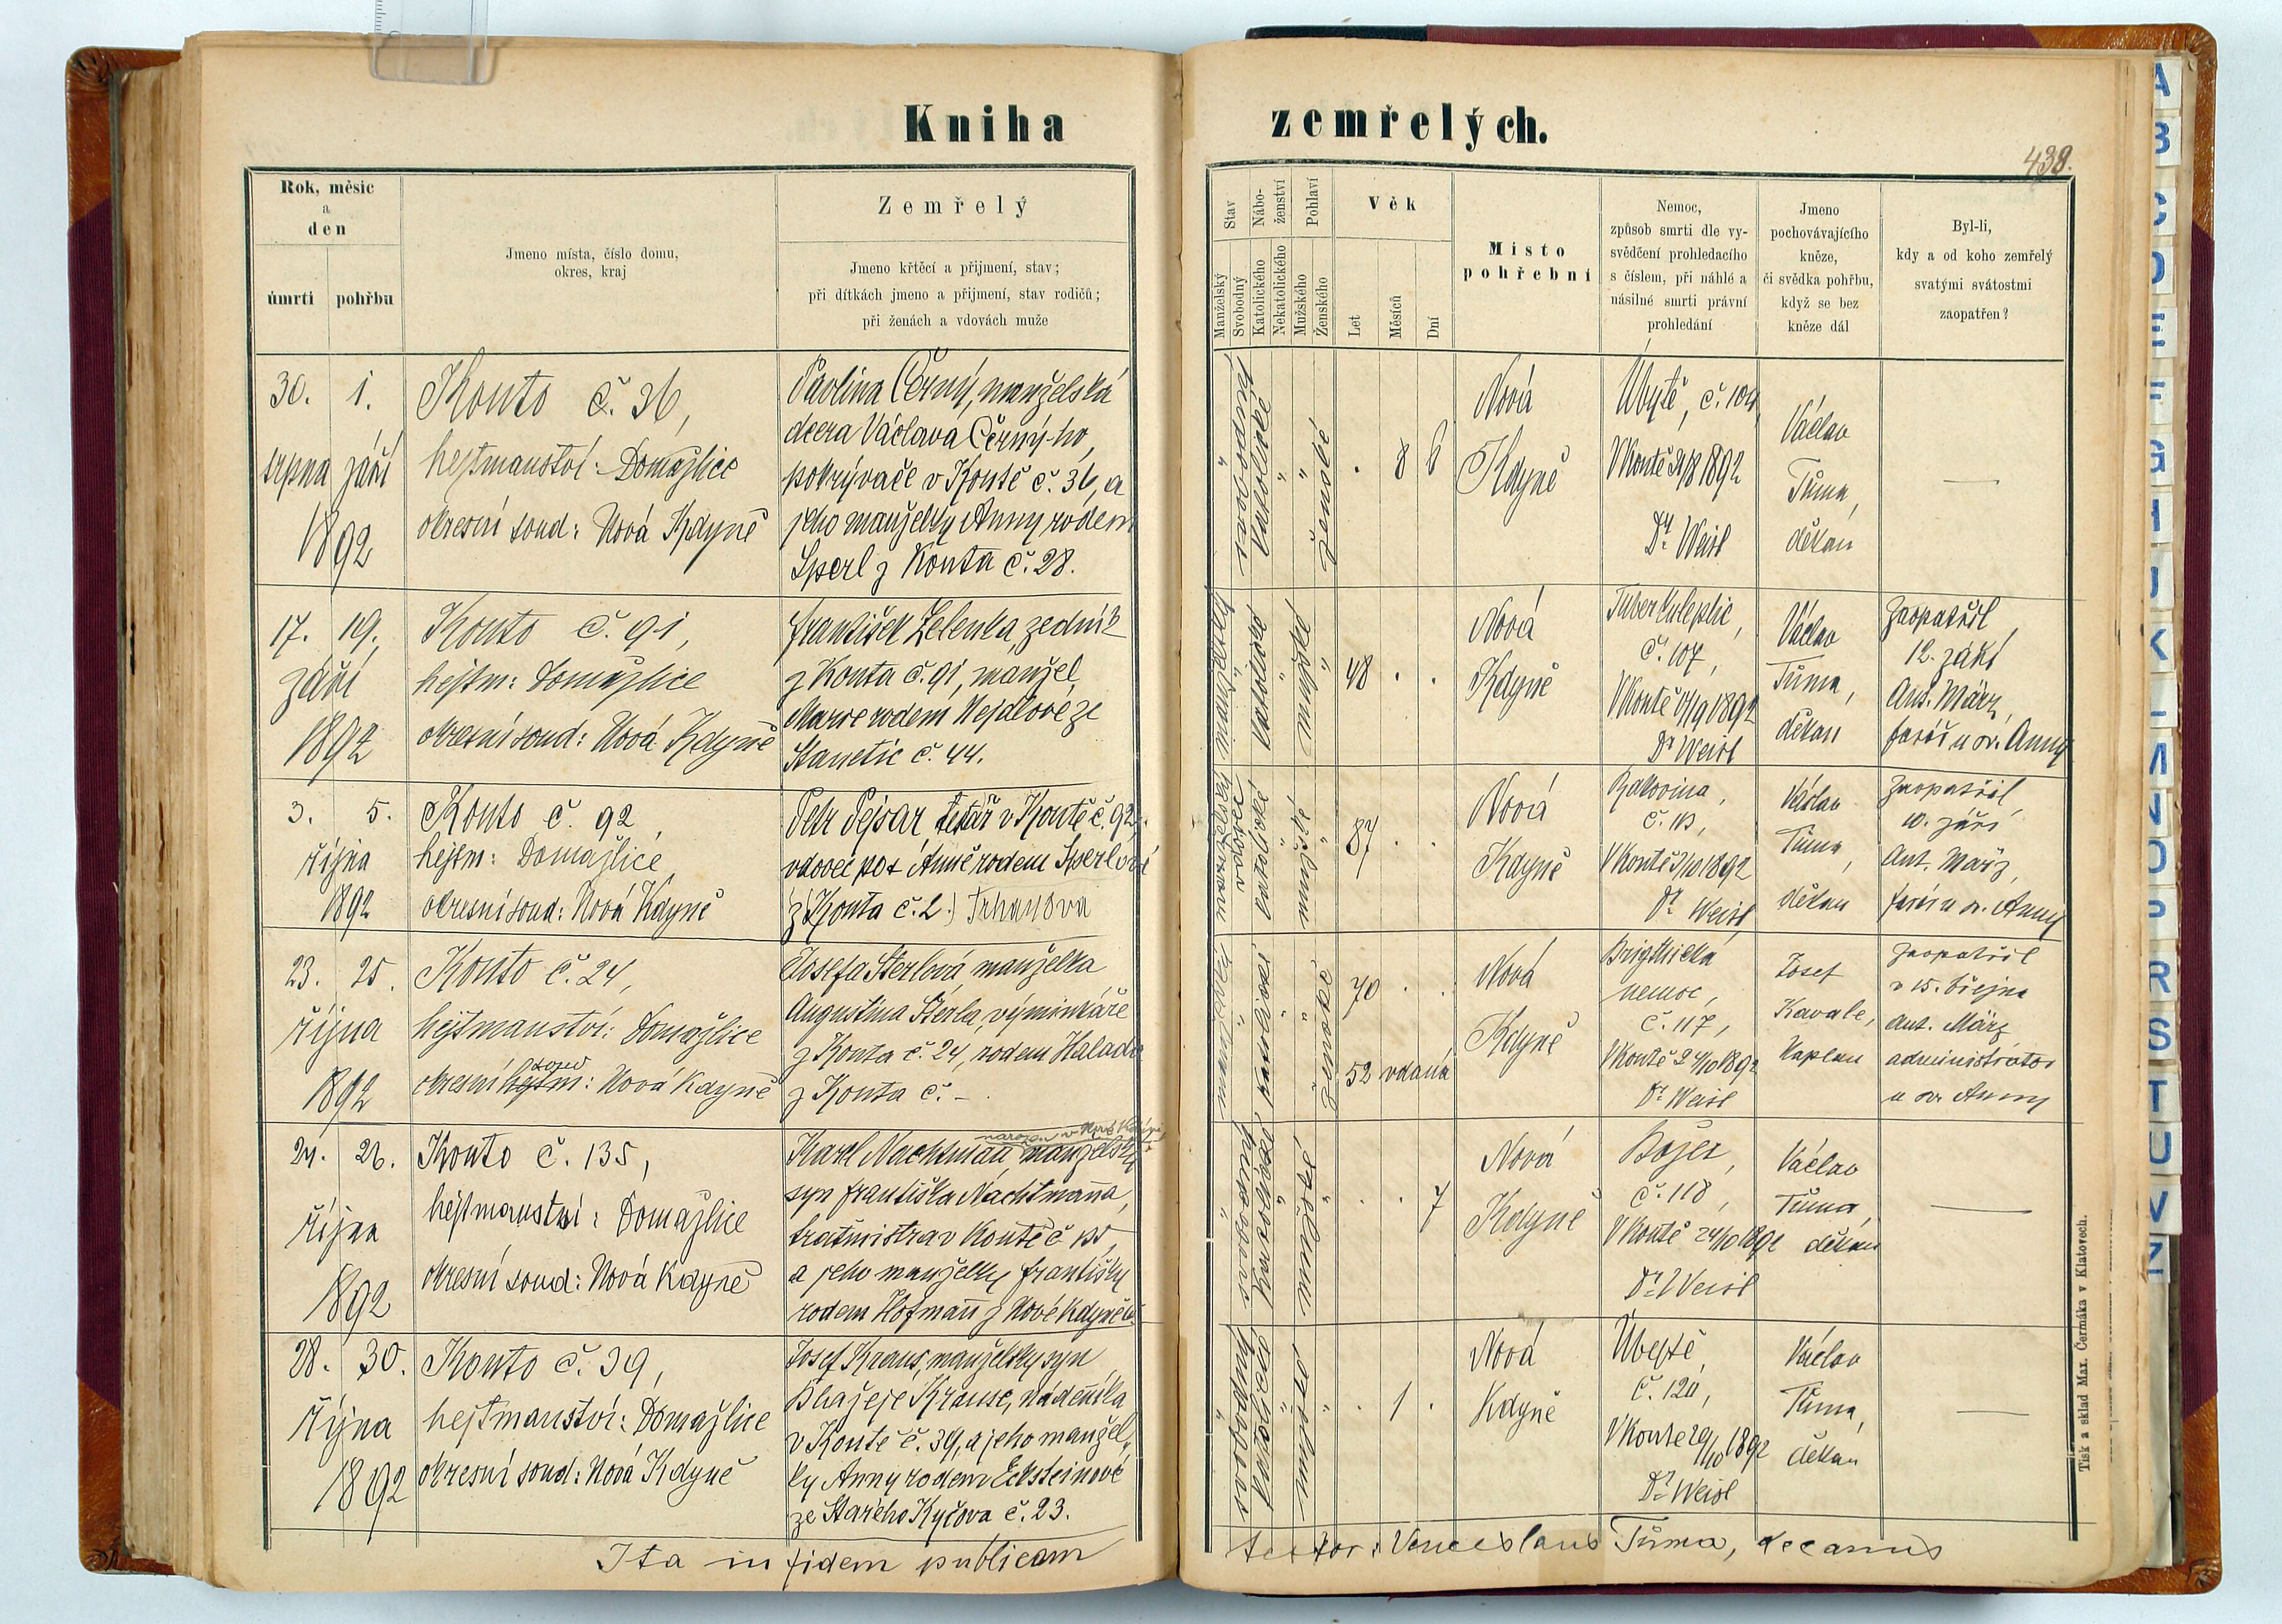 Kniha zemřelých.
438.
Rok, měsíc
a
den
úmrtí
pohřbu
Jmeno místa, číslo domu,
okres, kraj
Zemřelý
Jmeno křtěcí a přijmení, stav;
při dítkách jmeno a přijmení, stav rodičů;
při ženách a vdovách muže
Stav
Manželský
Svobodný
Nábo-
ženství
Katolického
Nekatolického
Pohlaví
Mužského
Ženského
Věk
Let
Měsíců
Dní
Místo
pohřební
Nemoc,
způsob smrti dle vy-
svědčení prohledacího
s číslem, při náhlé a
násilné smrti právní
prohledání
Jmeno
pochovávajícího
kněze,
či svědka pohřbu,
když se bez
kněze dál
Byl-li,
kdy a od koho zemřelý
svatými svátostmi
zaopatřen?
30. 1.
srpna září
1892
Kouto č. 36,
hejtmanství: Domažlice
okresní soud: Nová Kdyně
Pavlina Černý, manželská
dcera Václava Černý-ho,
pokrývače v Koutě č. 36, a
jeho manželky Anny rodem
Sperl z Kouta č. 28.
svobodná
katolické
ženské
. 8 6
Nová
Kdyně
Úbytě, č. 104
V Koutě 31/8 1892
Dr. Weisl
Václav
Tůma,
děkan
—
17. 19.
září
1892
Kouto č. 91,
hejtm: Domažlice
okresní soud: Nová Kdyně
František Zelenka, zedník
z Kouta č. 91, manžel
Marie rodem Vejdlové ze
Stanětic č. 44.
katolické
mužské
48 . .
Nová
Kdyně
č. 107,
Dr. Weisl
Václav
Tůma,
děkan
Zaopatřil
12. září
Ant. März,
farář u sv. Anny
3. 5.
října
1892
Kouto č. 92,
hejtm: Domažlice
okresní soud: Nová Kdyně
Petr Pejsar tesař v Koutě č. 92,
vdovec po † Anně rodem Sperlové
z (Kouta č. 2.) Trhanova
vdovec
katolické
mužské
87 . .
Nová
Kdyně
Rakovina,
č. 113,
V Koutě 3/10 1892
Dr. Weisl
Václav
Tůma,
děkan
Zaopatřil
10. září
Ant. März,
farář u sv. Anny
23. 25.
října
1892
Kouto č. 24,
hejtmanství: Domažlice
soud
okresní hejtm: Nová Kdyně
Josefa Šterlová manželka
Augustina Šterla, výminkáře
z Kouta č. 24, rodem Halada
z Kouta č. –
ženské
70 . .
52 vdaná
Nová
Kdyně
Brigthická
nemoc,
č. 117,
V Koutě 24/10 1892
Dr. Weisl
Josef
Kavale,
kaplan
Zaopatřil
v 15. října
Ant. März
administrátor
u sv. Anny
24. 26.
října
1892
Kouto č. 135,
hejtmanství: Domažlice
okresní soud: Nová Kdyně
narozen v Nové Kdyni
Karl Nachtmañ manželský
syn Františka Nachtmaña,
traťmistra v Koutě č 135,
a jeho manželky Františky
rodem Hofmañ z Nové Kdyně č.
svobodný
katolické
mužské
. . 7
Nová
Kdyně
Božec,
č. 118,
V Koutě 24/10 1892
Dr. Weisl
Václav
Tůma,
děkan
—
28. 30.
října
1892
Kouto č. 39,
hejtmanství: Domažlice
okresní soud: Nová Kdyně
Josef Kraus, manželský syn
Blažeje Krause, nádeníka
v Koutě č. 39, a jeho manžel-
ky Anny rodem Ecksteinové
ze Starého Kyčova č. 23.
svobodný
katolické
mužské
. 1 .
Nová
Kdyně
Úbytě,
č. 120,
V Koutě 29/10 1892
Dr. Weisl
Václav
Tůma,
děkan
—
Ita in fidem publicam
testor: Venceslaus Tůma, decanus
Tisk a sklad Max. Čermáka v Klatovech.
A
B
C
D
E
F
G
H
I
J
K
L
M
N
O
P
R
S
T
U
V
Z